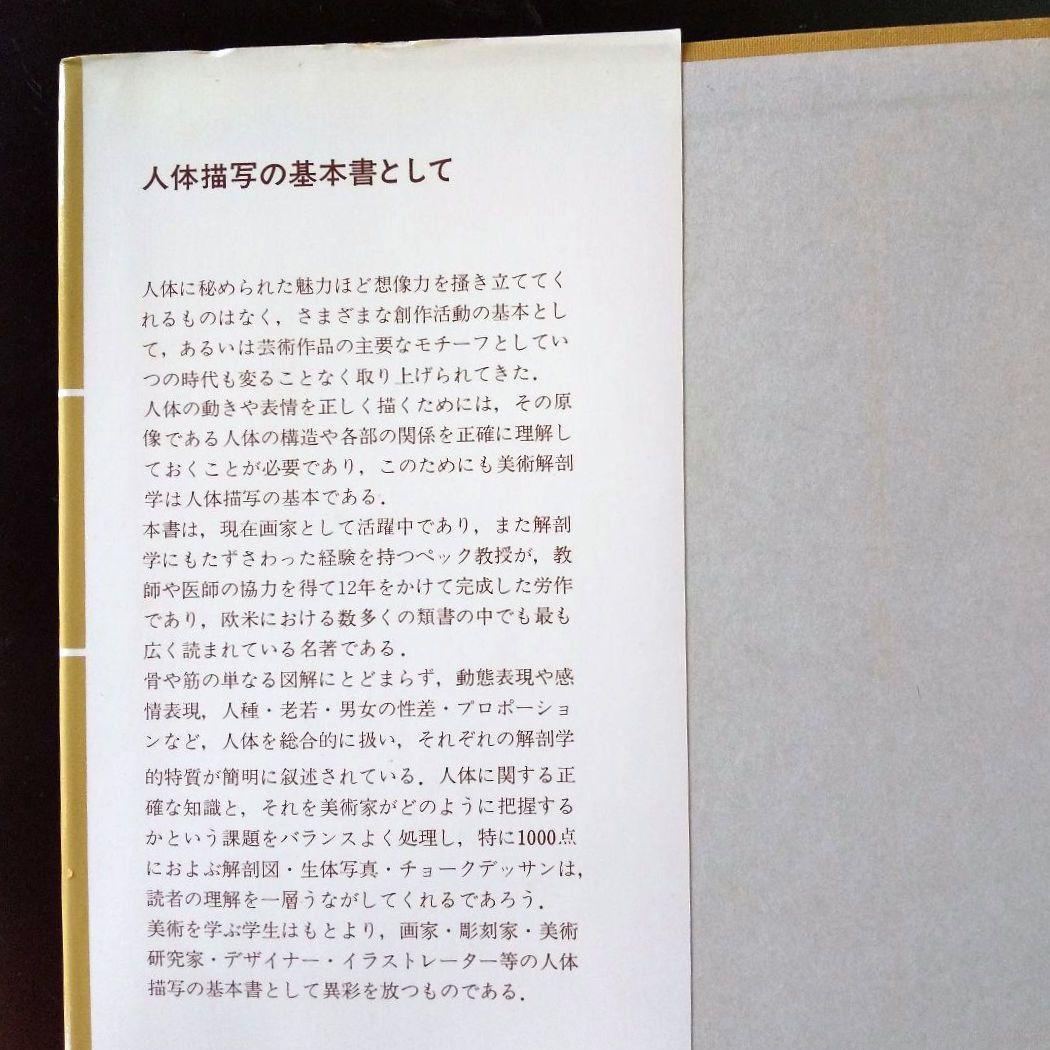 人体描写の基本書として
人体に秘められた魅力ほど想像力を掻き立ててく
れるものはなく，さまざまな創作活動の基本とし
て，あるいは芸術作品の主要なモチーフとしてい
つの時代も変ることなく取り上げられてきた．
人体の動きや表情を正しく描くためには，その原
像である人体の構造や各部の関係を正確に理解し
ておくことが必要であり，このためにも美術解剖
学は人体描写の基本である．
本書は，現在画家として活躍中であり，また解剖
学にもたずさわった経験を持つペック教授が，教
師や医師の協力を得て12年をかけて完成した労作
であり，欧米における数多くの類書の中でも最も
広く読まれている名著である．
骨や筋の単なる図解にとどまらず，動態表現や感
情表現，人種・老若・男女の性差・プロポーショ
ンなど，人体を総合的に扱い，それぞれの解剖学
的特質が簡明に叙述されている．人体に関する正
確な知識と，それを美術家がどのように把握する
かという課題をバランスよく処理し，特に1000点
におよぶ解剖図・生体写真・チョークデッサンは，
読者の理解を一層うながしてくれるであろう．
美術を学ぶ学生はもとより，画家・彫刻家・美術
研究家・デザイナー・イラストレーター等の人体
描写の基本書として異彩を放つものである．